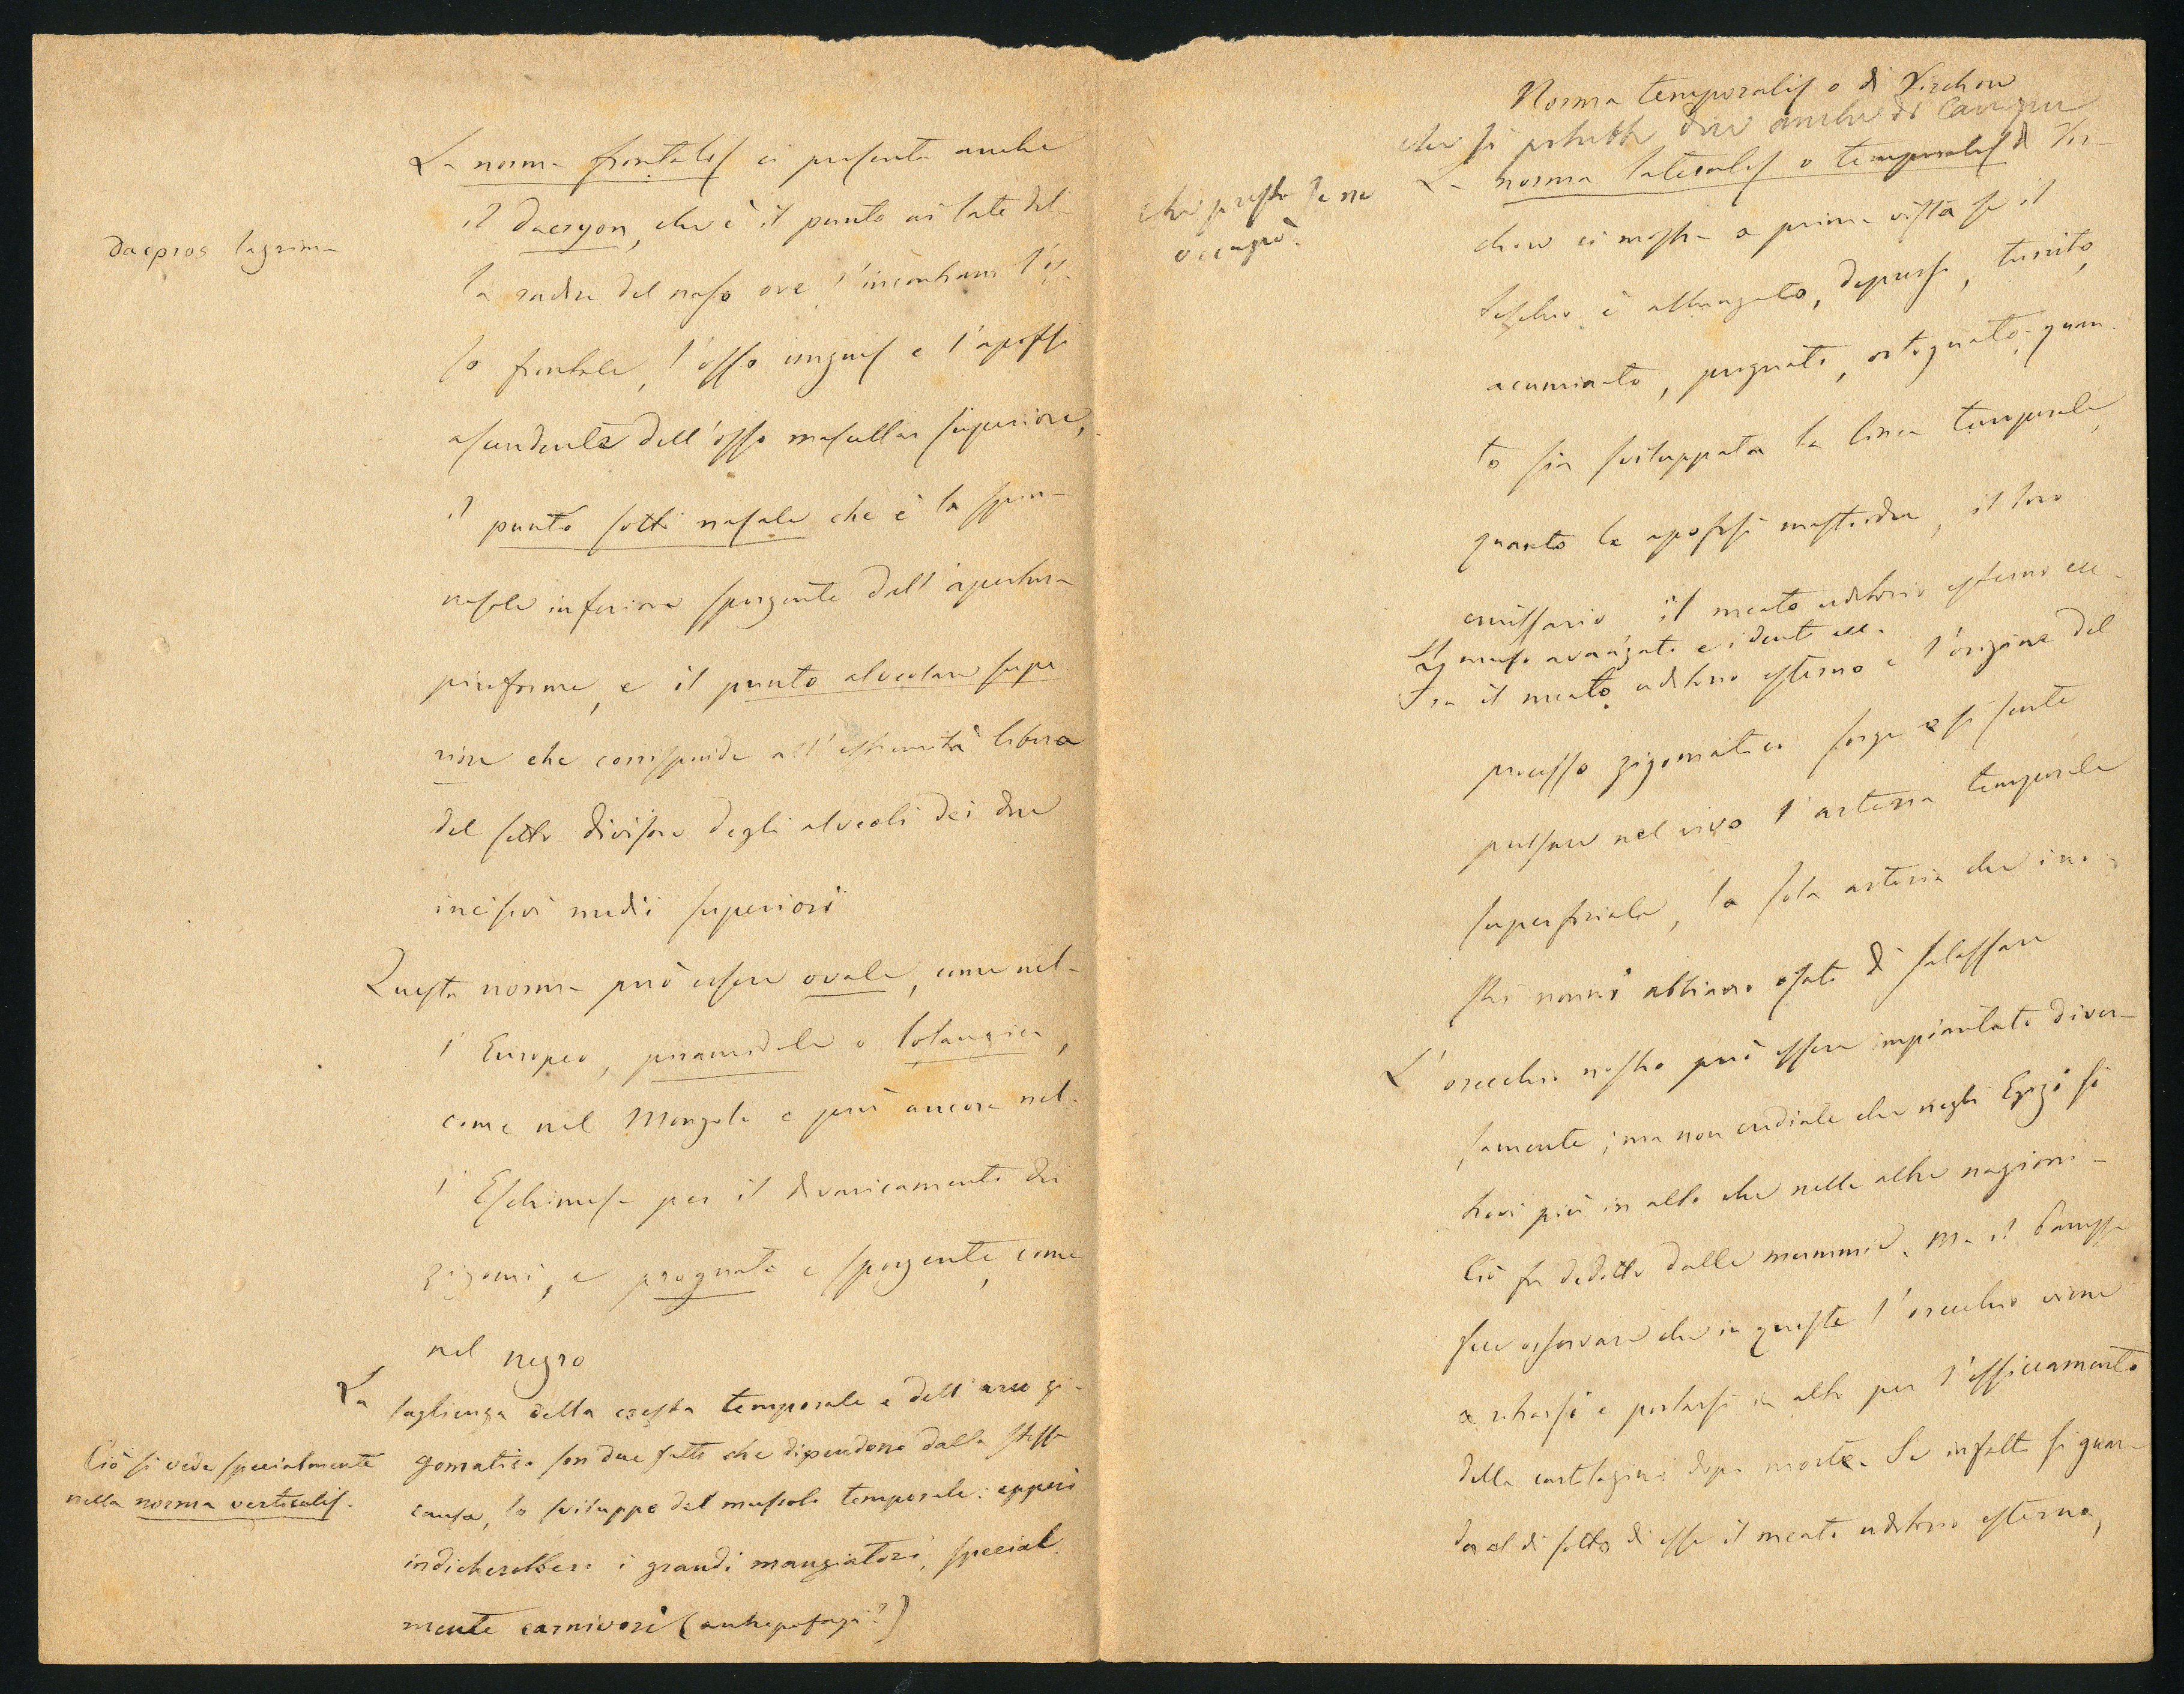 La norma frontalis ci presenta anche
il dacryon, che è il punto ai lati del-
la radice del naso ove s'incontrano l'os-
so frontale, l'osso unguis e l'apofisi
ascendente dell'osso mascellar superiore,
il punto sotto nasale che è la spina
nasale inferiore sporgente dall'apertura
piriforme, e il punto alveolare supe
riore che corrisponde all'estremità libera
del setto divisore degli alveoli dei due
incisivi medii superiori
Questa norma può essere ovale, come nel-
l'Europeo, piramidale o losangica,
come nel Mongolo e più ancora nel-
l'Eschimese per il divaricamento dei
zigomi, e prognata e sporgente, come
nel negro
La taglienza della cresta temporale e dell'arco zi-
gomatico son due fatti che dipendono dalla stessa
causa, lo sviluppo del muscolo temporale: epperò
indicherebbero i grandi mangiatori, special
mente carnivori (antropofagi?)
Dacpros lagrima
Ciò si vede specialmente
nella norma verticalis.
Norma temporalis o di Virchow
che si potrebbe dire anche di
La norma lateralis o temporalis di Vir-
chow ci mostra a prima vista se il
teschio è allungato, depresso, turrito,
acuminato, prognato, ortognato, quan-
to sia sviluppata la linea temporale,
quanto le apofisi mastoidee, il loro
emissario il meato uditorio esterno ecc.
Il muso avanzato e i denti ecc.
Fra il meato uditorio esterno e l'origine del
processo zigomatico sorge e si sente
pulsare nel vivo l'arteria temporale
superficiale, la sola arteria che i no-
stri nonni abbiano osato di salassare
L'orecchio nostro può essere impiantato diver-
samente; ma non crediate che negli Egizi si
trovi più in alto che nelle altre nazioni-
Ciò fu dedotto dalle mummie. Ma il
fece osservare che in queste l'orecchio viene
a ritrarsi e portarsi in alto per l'essiccamento
della cartilagine dopo morte. Se infatti si guar-
da al di sotto di esse il meato uditorio esterno,
che presto se ne
occupò.